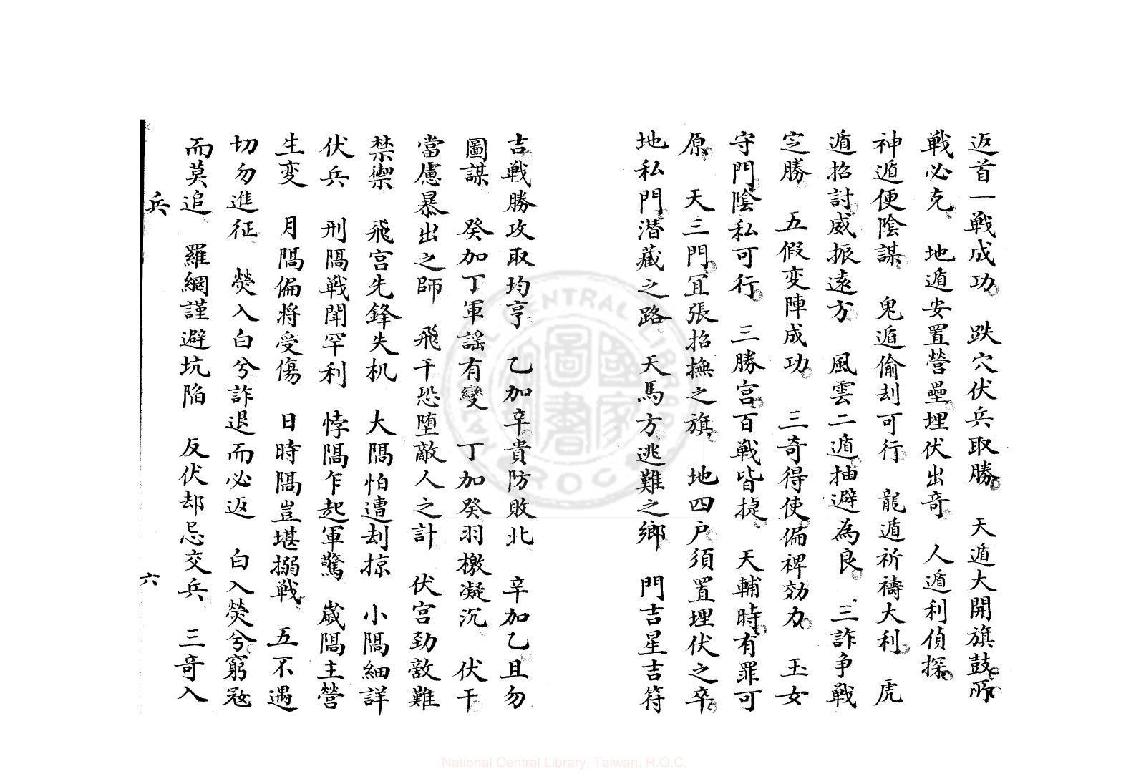 返首一戰成功　跌穴伏兵取勝　天遁大開旗鼓所
戰必克　地遁安置營壘埋伏出奇　人遁利偵探
神遁便陰謀　鬼遁偷刦可行　龍遁祈禱大利　虎
遁招討威振遠方　風雲二遁抽避為良　三詐爭戰
定勝　五假變陣成功　三奇得使偏裨効力　玉女
守門陰私可行　三勝宮百戰皆捷　天輔時有罪可
原　天三門宜張招撫之旗　地四戶須置埋伏之卒
地私門潛藏之路　天馬方逃難之鄉　門吉星吉符
吉戰勝攻取均亨　乙加辛貴防敗北　辛加乙且勿
圖謀　癸加丁軍謠有變　丁加癸羽檄凝沉　伏干
當慮暴出之師　飛干恐墮敵人之計　伏宮勁敵難
禁禦　飛宮先鋒失机　大隔怕遭刦掠　小隔細詳
伏兵　刑隔戰鬪罕利　悖隔乍起軍驚　歲隔主營
生變　月隔偏將受傷　日時隔豈堪搦戰　五不遇
切勿進征　熒入白兮詐退而必返　白入熒兮窮寇
而莫追　羅網謹避坑陷　反伏却忌交兵　三奇入
兵　六
National Central Library, Taiwan, R.O.C.